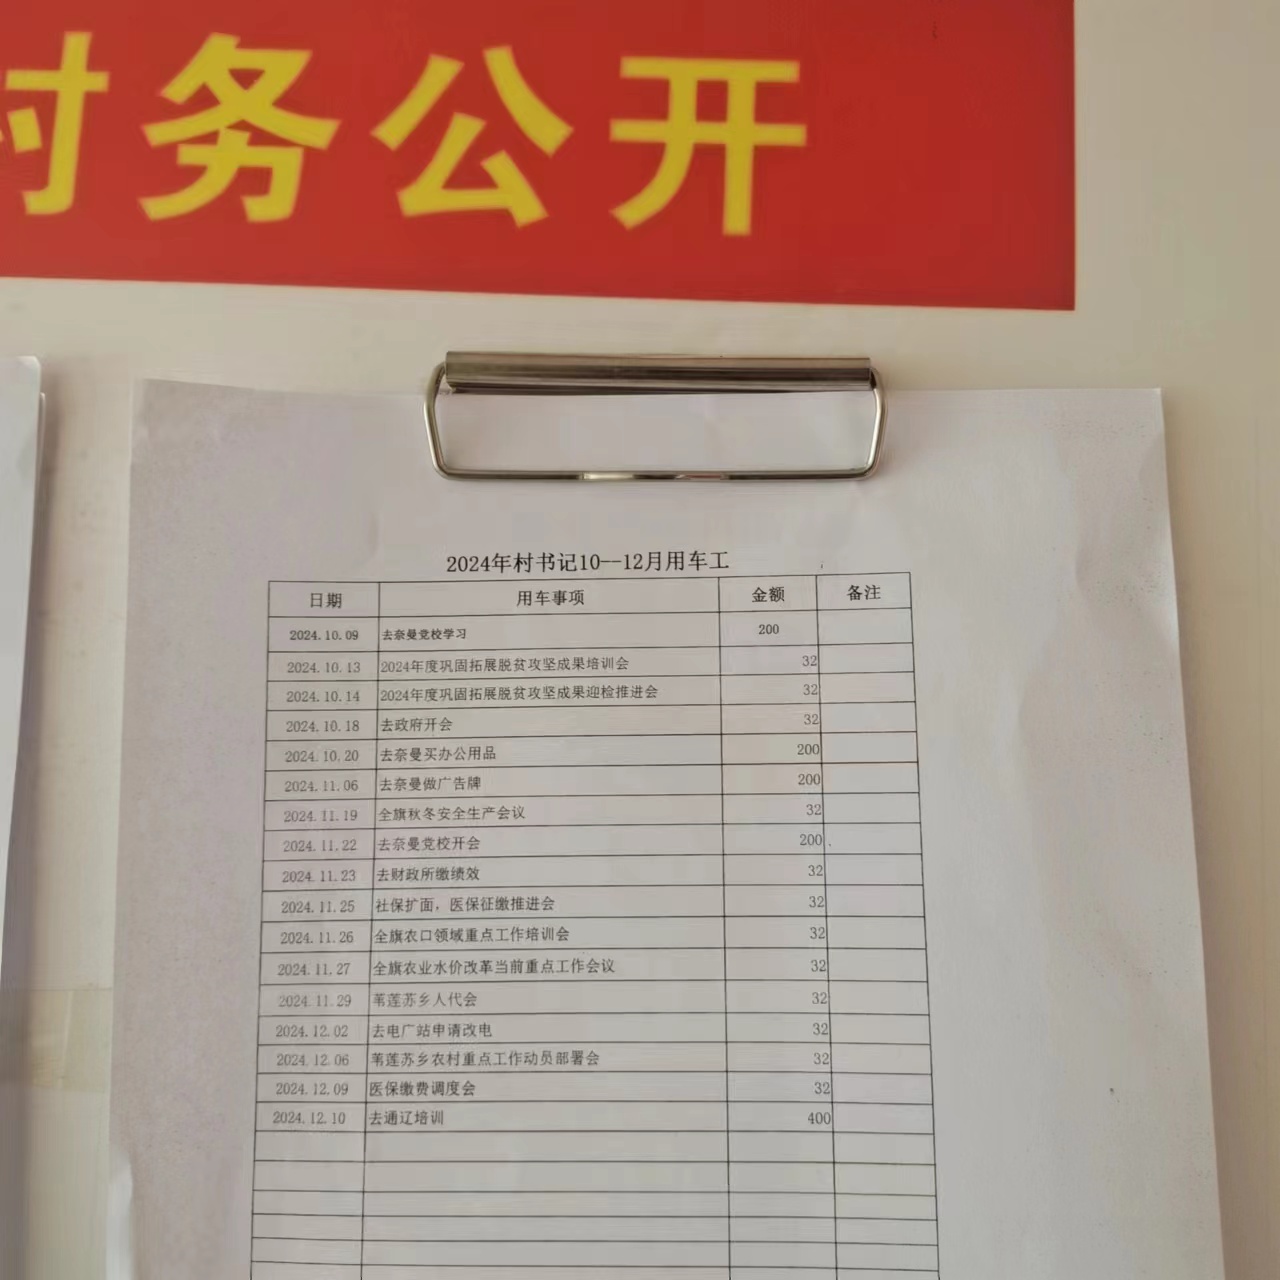 村务公开
2024年村书记10--12月用车工
日期 用车事项 金额 备注
2024.10.09 去奈曼党校学习 200
2024.10.13 2024年度巩固拓展脱贫攻坚成果培训会 32
2024.10.14 2024年度巩固拓展脱贫攻坚成果迎检推进会 32
2024.10.18 去政府开会 32
2024.10.20 去奈曼买办公用品 200
2024.11.06 去奈曼做广告牌 200
2024.11.19 全旗秋冬安全生产会议 32
2024.11.22 去奈曼党校开会 200
2024.11.23 去财政所缴绩效 32
2024.11.25 社保扩面，医保征缴推进会 32
2024.11.26 全旗农口领域重点工作培训会 32
2024.11.27 全旗农业水价改革当前重点工作会议 32
2024.11.29 苇莲苏乡人代会 32
2024.12.02 去电广站申请改电 32
2024.12.06 苇莲苏乡农村重点工作动员部署会 32
2024.12.09 医保缴费调度会 32
2024.12.10 去通辽培训 400